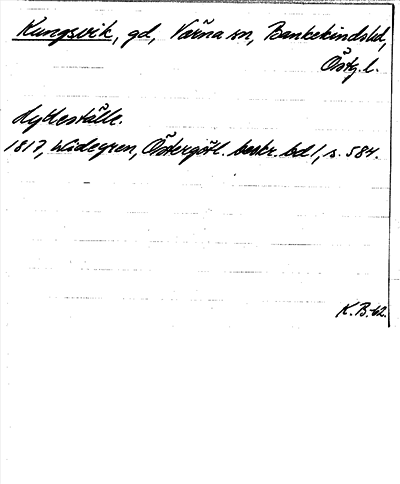 Kungsvik, gd, Värna sn, Bankekinds hd,
Östg. l.
Lytteställe.
1817, Widegren, Östergötl. beskr. bd 1, s. 584.
K.B. 62.